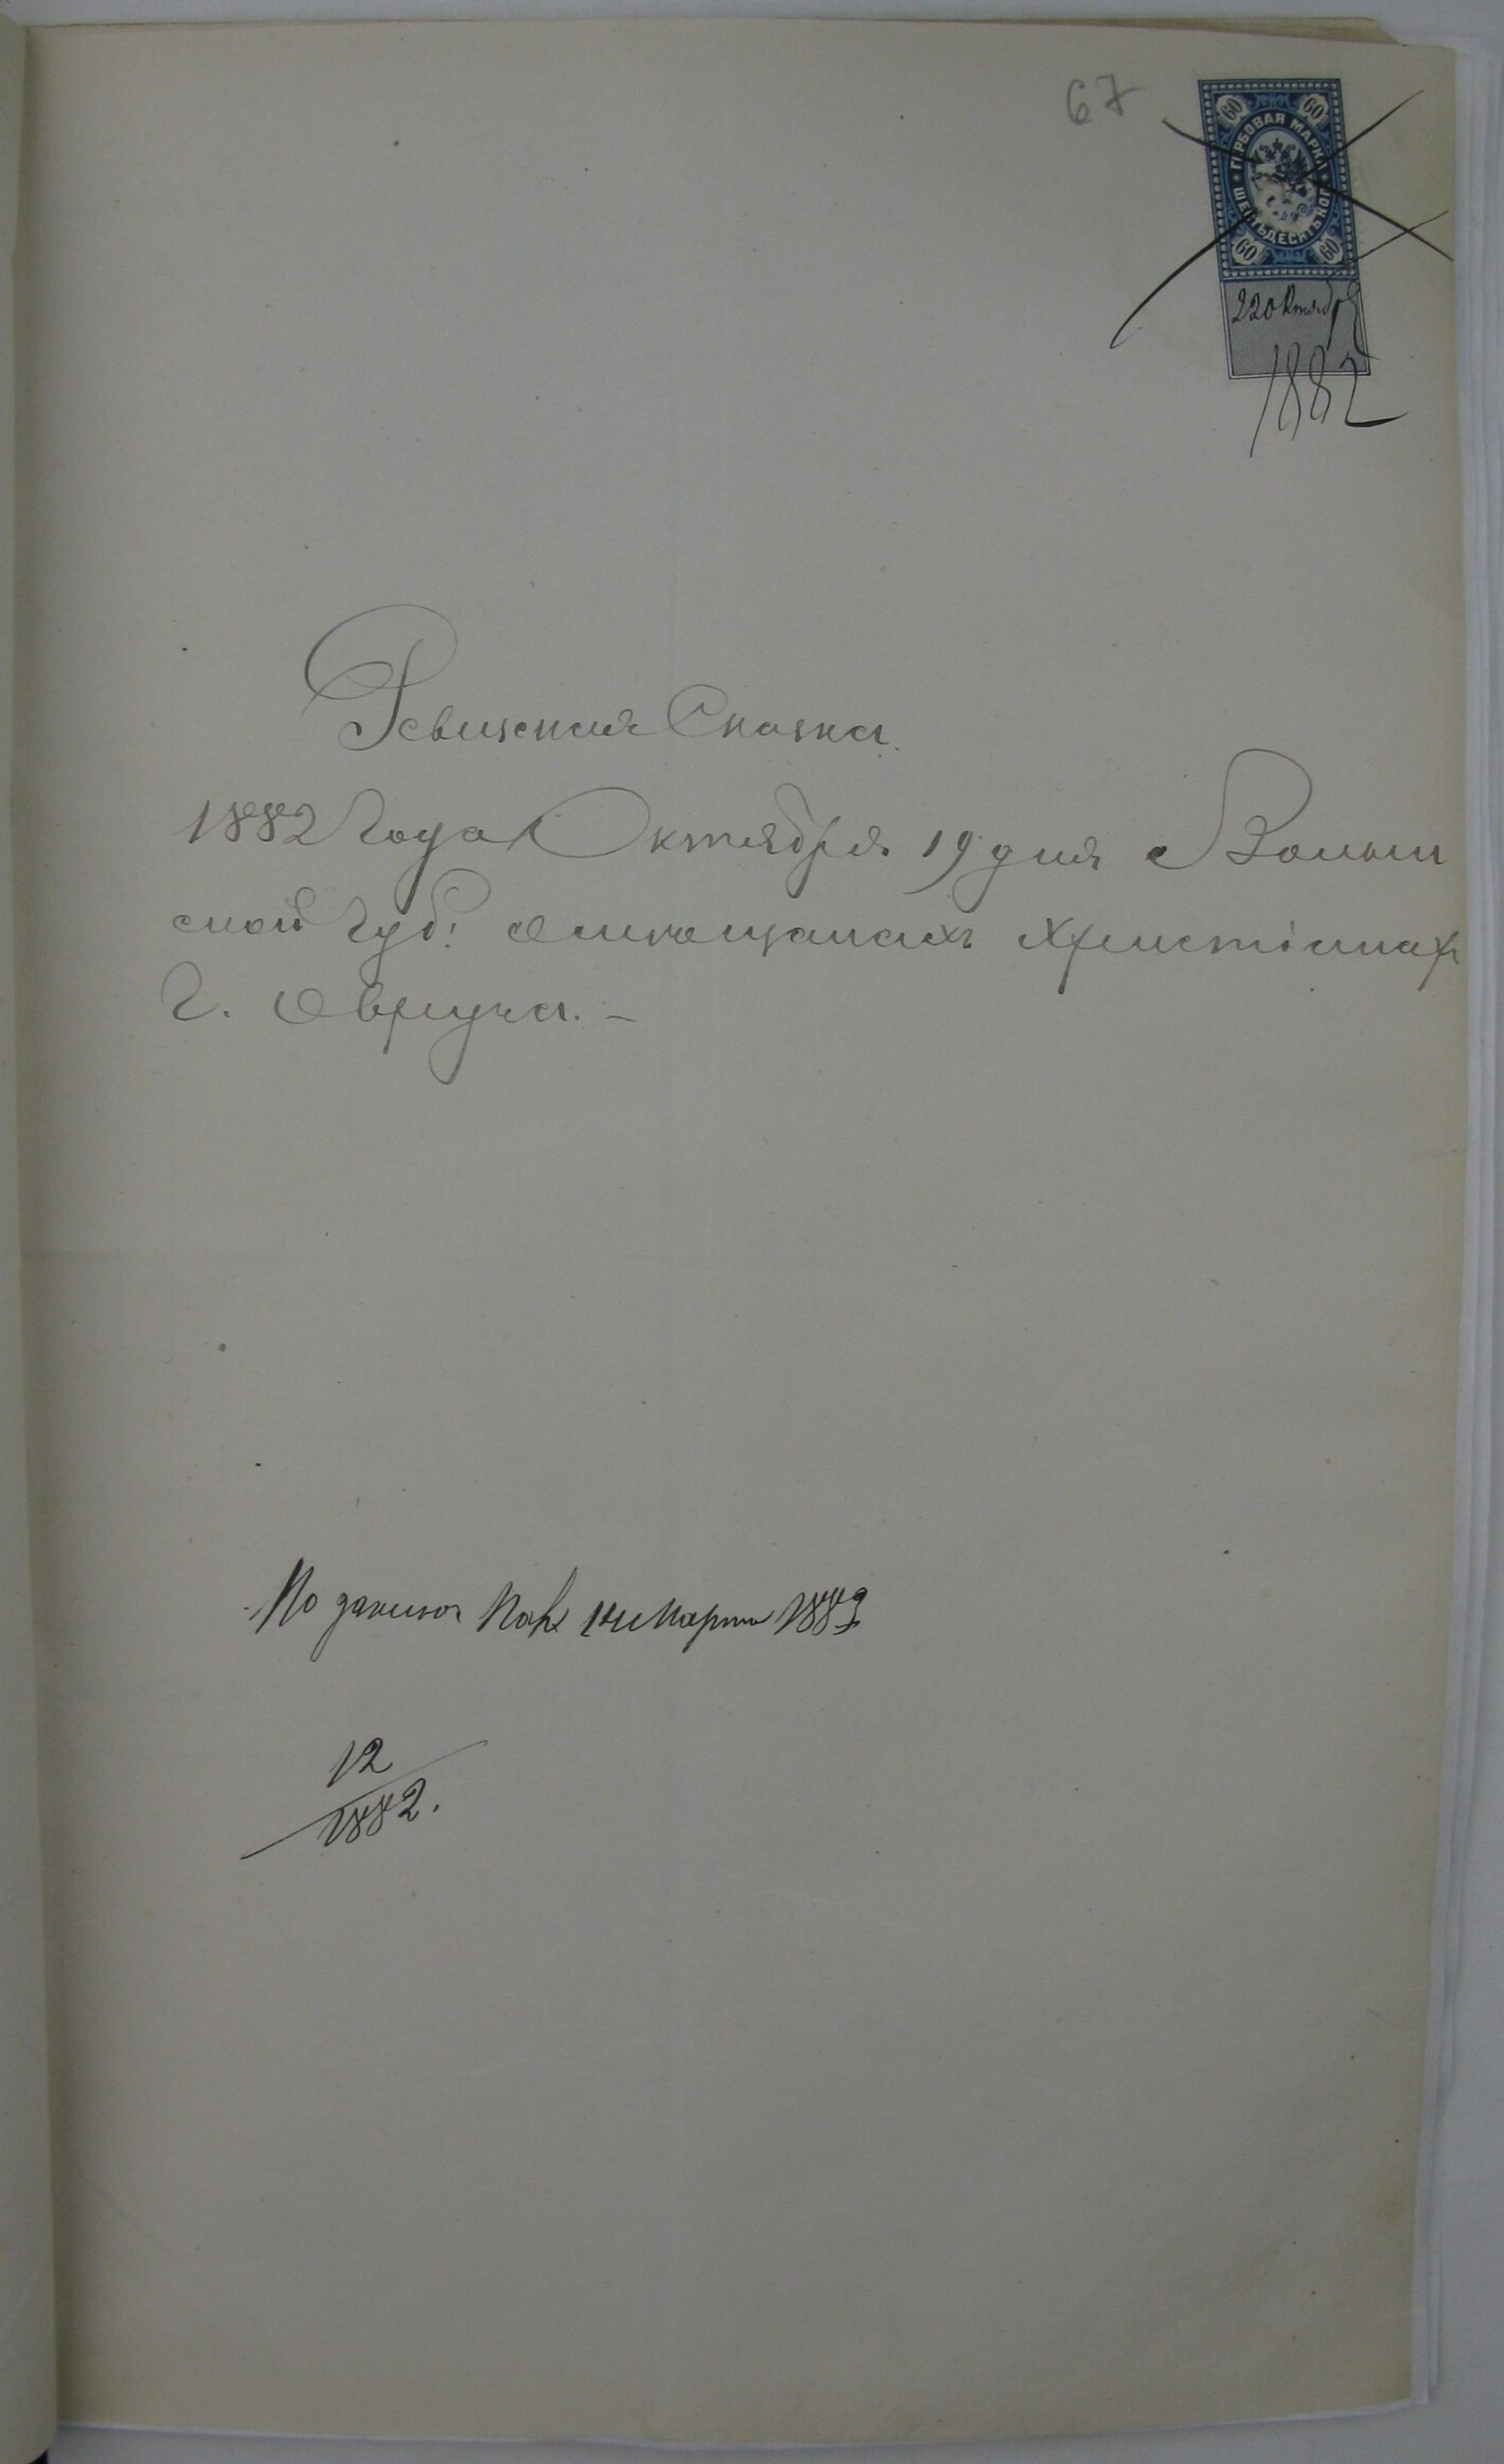 67
60 60
ГЕРБОВАЯ МАРКА
ШЕСТЬДЕСЯТЪ КОП
60 60
22 Октября
1882
Ревизская Сказка.
1882 Года Октября 19 дня Волын
ской Губ: о мещанахъ христіанах
Г. Овруча. –
По 14 Марта 1883
12
1882.